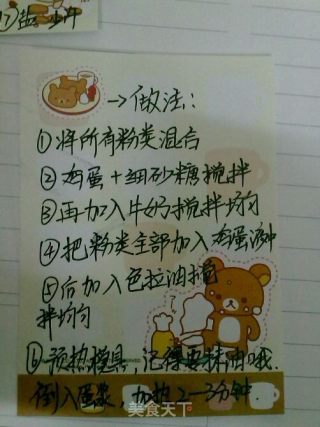 ⑦盐 少许
→做法:
①将所有粉类混合
②鸡蛋+细砂糖搅拌
③再加入牛奶搅拌均匀
④把粉类全部加入鸡蛋液中
⑤后加入色拉油搅
拌均匀
⑥预热模具,记得要抹油哦.
倒入蛋浆,加热2-3分钟
美食天下